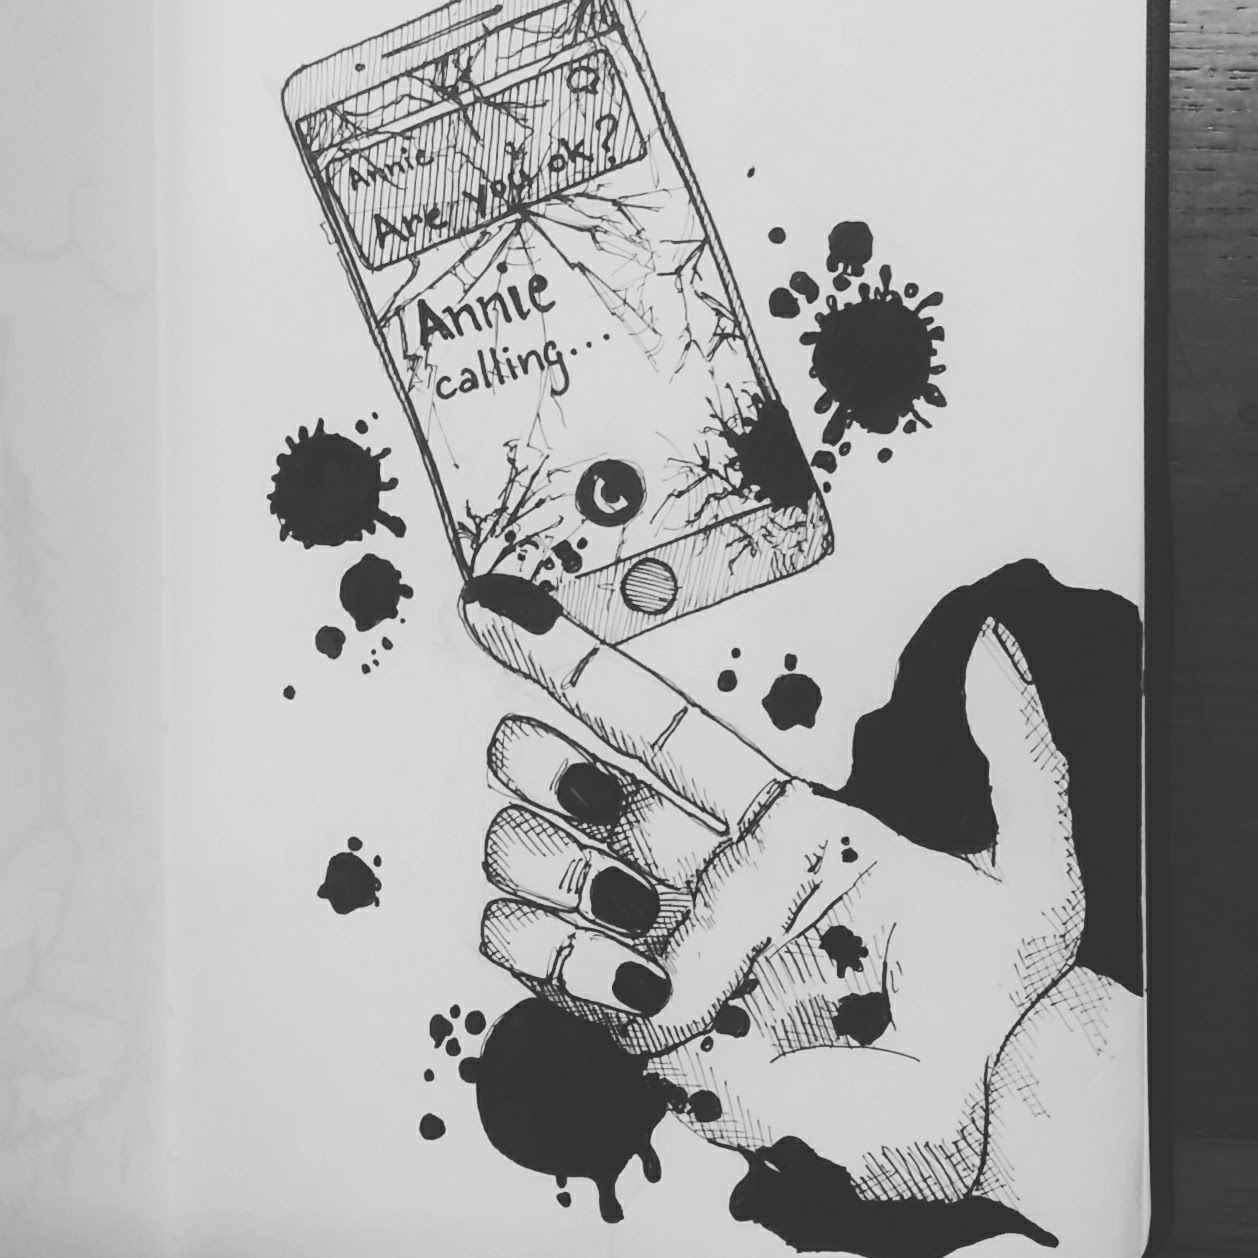 Annie
Are you ok?
Annie
calling...